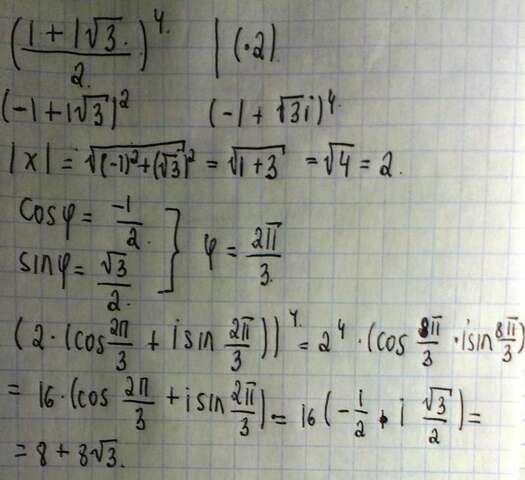 (\frac{1 + i\sqrt{3}.}{2.})^{4.} | (·2)
(-1+i\sqrt{3})^2 (-1 + \sqrt{3}i)^{4.}
|x| = \sqrt{(-1)^2+(\sqrt{3})^2} = \sqrt{1+3} = \sqrt{4} = 2.
cosφ = \frac{-1}{2.} } φ = \frac{2π}{3.}
sinφ = \frac{\sqrt{3}}{2.}
(2·(cos\frac{2π}{3} + i sin\frac{2π}{3}))^{4.} = 2^4 · (cos\frac{8π}{3} · i sin\frac{8π}{3})
= 16·(cos\frac{2π}{3} + i sin\frac{2π}{3}) = 16(-\frac{1}{2} + i\frac{\sqrt{3}}{2}) =
= 8 + 8\sqrt{3}.